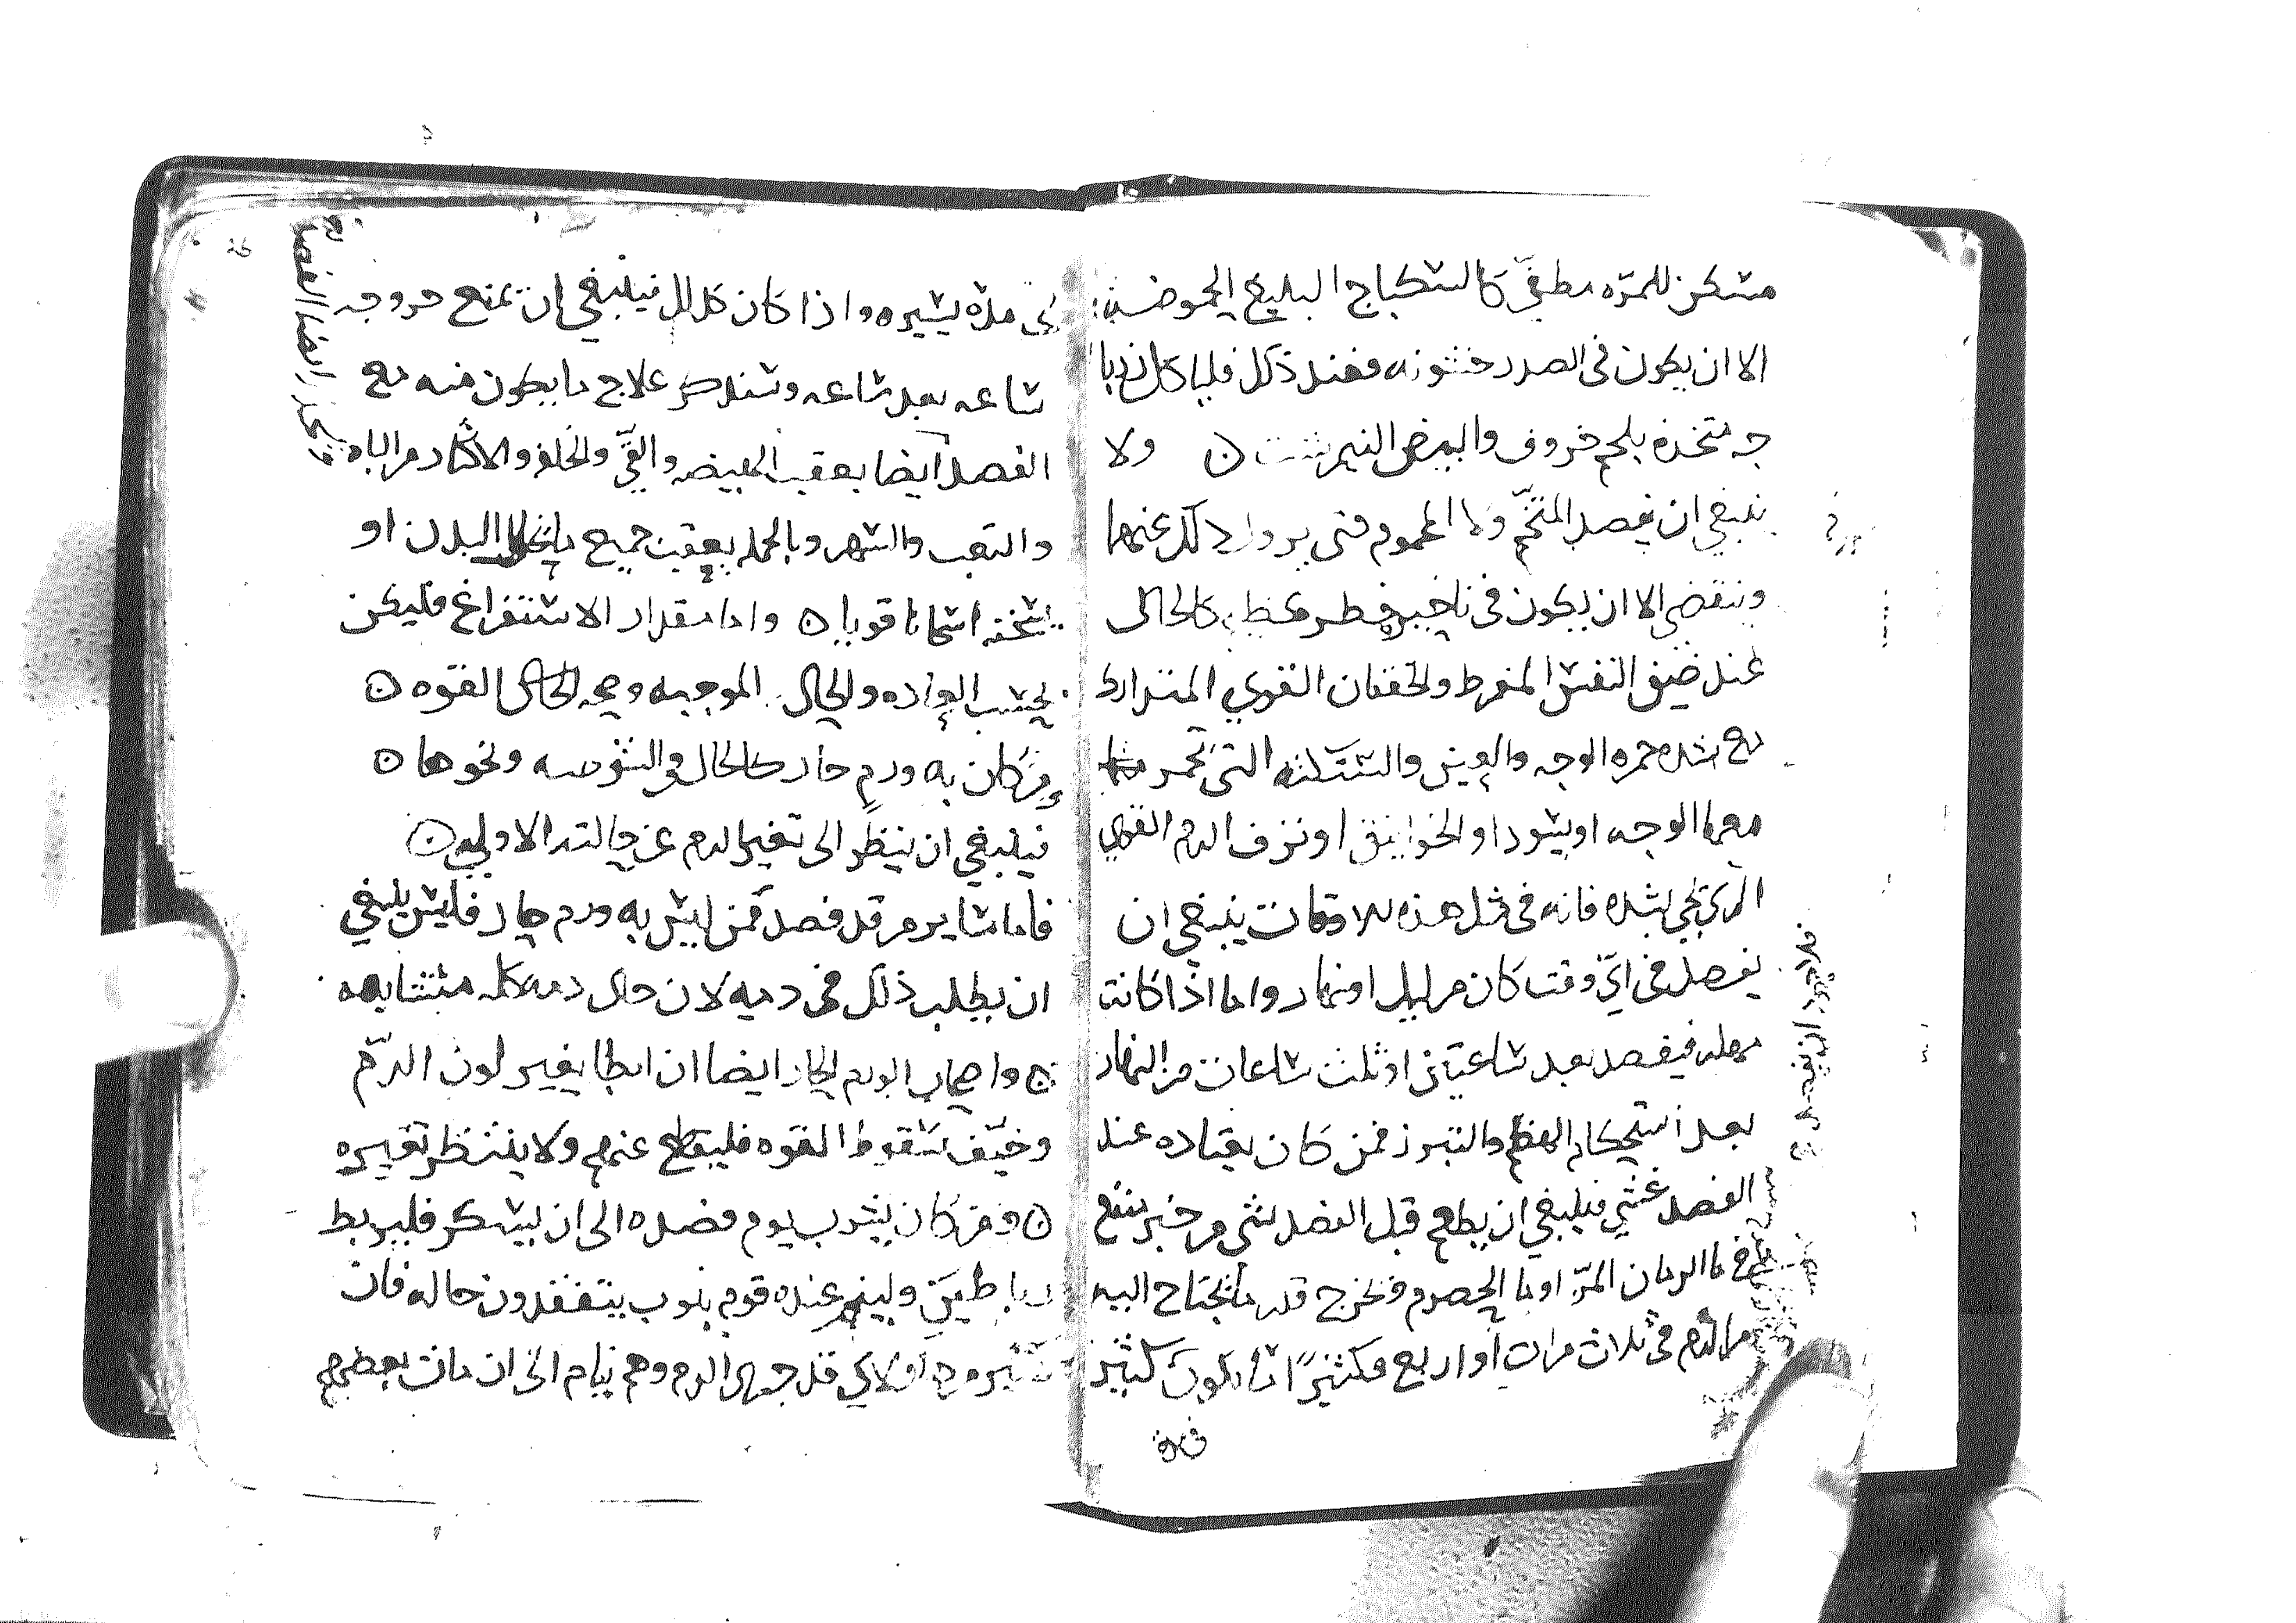 مسكن للمرّه مطفّى كالسكباج البليغ الحموضه
الا ان يكون فى الصدر خشونه فعند ذلك فلياكل زيربا
جه متخذه بلحم خروف والبيض النيمرشت ں ولا
ينبغي ان يفصد المتخّم ولا المحموم متى يزول ذلك عنهما
وينقضي الا ان يكون فى تاخيره خطر عظيم كالحال
عند ضيق النفس المفرط والخفقان القوي المتدارك
مع شده حمره الوجه والعين والسكته التى تحمر
معها الوجه او يسود او الخوانيق او نزف الدم القوي
الذي يجي بشده فانه فى مثل هذه الاوقات ينبغي ان
يفصد فى ايّ وقت كان من ليل او نهار واما اذا كانت
مهله فيفصد بعد ساعتين او ثلث ساعات من النهار
بعد استحكام الهضم والتبرز فمن كان يعتاده عند
الفصد غشي فينبغي ان يطعم قبل الفصد بشي من خبز ينقع
فى ما الرمان المرّ او ما الحصرم ويخرج قدر ما يحتاج اليه
من الدم فى ثلاث مرات او اربع فكثيرًا ما يكون كثير
فى مده يسيره واذا كان كذلك فينبغي ان يمنع خروجه
ساعه بعد ساعه وسنذكر علاج ما يكون منه مع
الفصد ايضا بعقب الهيضه والقيّ والخلفه والاكثار من الباه
والتعب والسهر وبالجمله بعقب جميع ما يحلل البدن او
يسخنه اسخانا قويا ں واما مقدار الاستفراغ فليكن
بحسب العاده والحال الموجبه وبحسب القوه ں
ومن كان به ورم حار كالحال فى الشوصه ونحوها ں
فينبغي ان ينظر الى تغير الدم عن حالته الاولى ں
فاما ساير من قد فصد ممن ليس به ورم حار فليس ينبغي
ان يطلب ذلك فى دمه لان حال دمه كله متشابهه
ں واصحاب الورم الحار ايضا ان ابطا تغير لون الدّم
وخيف سقوط القوه فليقطع عنهم ولا ينتظر تغييره
ں ومن كان يشرب يوم فصده الى ان يسكر فليربط
برباطين ولينم عنده قوم بنوب يتفقدون حاله فان
كثيرا من هاولاي قد جرى الدم وهم نيام الى ان مات بعضهم